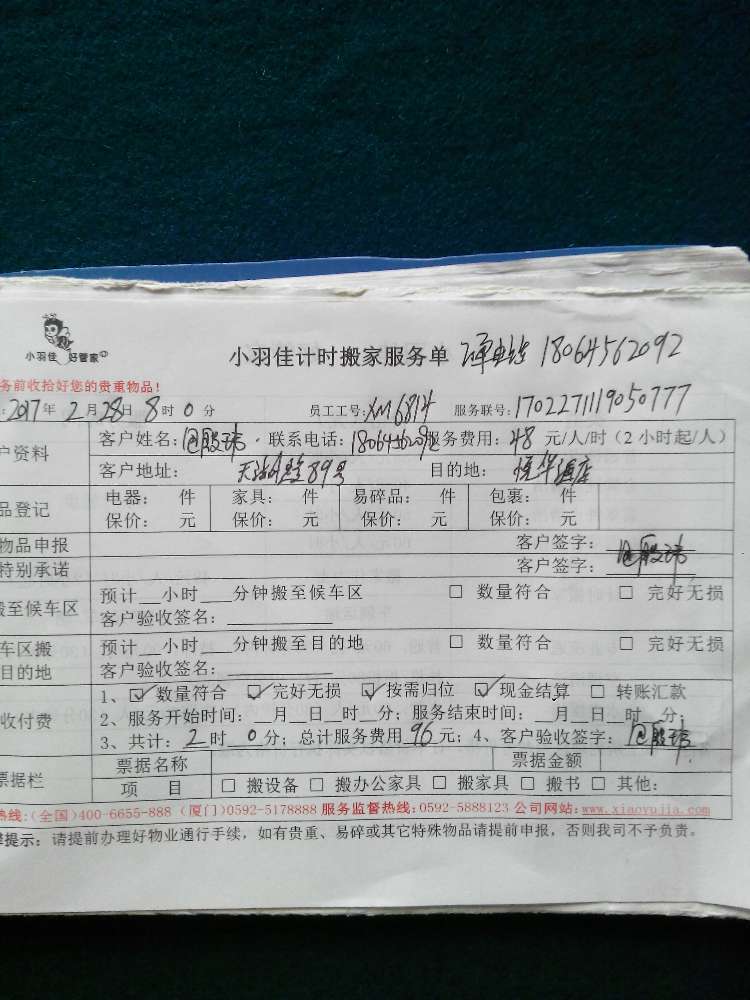 小羽佳 好管家
小羽佳计时搬家服务单 18064562092
务前收拾好您的贵重物品!
:2017年 2月28日 8时 0分 员工工号:XM6814 服务联号:1702271119050777
户资料 客户姓名: 联系电话:18064562092 服务费用:48 元/人/时(2小时起/人)
客户地址: 89号 目的地:悦华酒店
品登记 电器: 件 家具: 件 易碎品: 件 包裹: 件
保价: 元 保价: 元 保价: 元 保价: 元
物品申报 客户签字:
特别承诺 客户签字:
搬至候车区 预计__小时___分钟搬至候车区 □ 数量符合 □ 完好无损
客户验收签名:
车区搬 预计__小时___分钟搬至目的地 □ 数量符合 □ 完好无损
目的地 客户验收签名:
1、☑数量符合 ☑完好无损 ☑按需归位 ☑现金结算 □ 转账汇款
收付费 2、服务开始时间:__月__日__时__分;服务结束时间:__月__日__时__分;
3、共计:2时 0分;总计服务费用 96元;4、客户验收签字:
票据栏 票据名称 票据金额
项 目 □ 搬设备 □ 搬办公家具 □ 搬家具 □ 搬书 □ 其他:
热线:(全国)400-6655-888 (厦门)0592-5178888 服务监督热线:0592-5888123 公司网站:www.xiaoyujia.com
提示:请提前办理好物业通行手续,如有贵重、易碎或其它特殊物品请提前申报,否则我司不予负责。